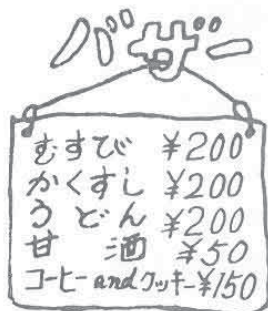 バザー
むすび ¥200
かくすし ¥200
うどん ¥200
甘酒 ¥50
コーヒーandクッキー¥150